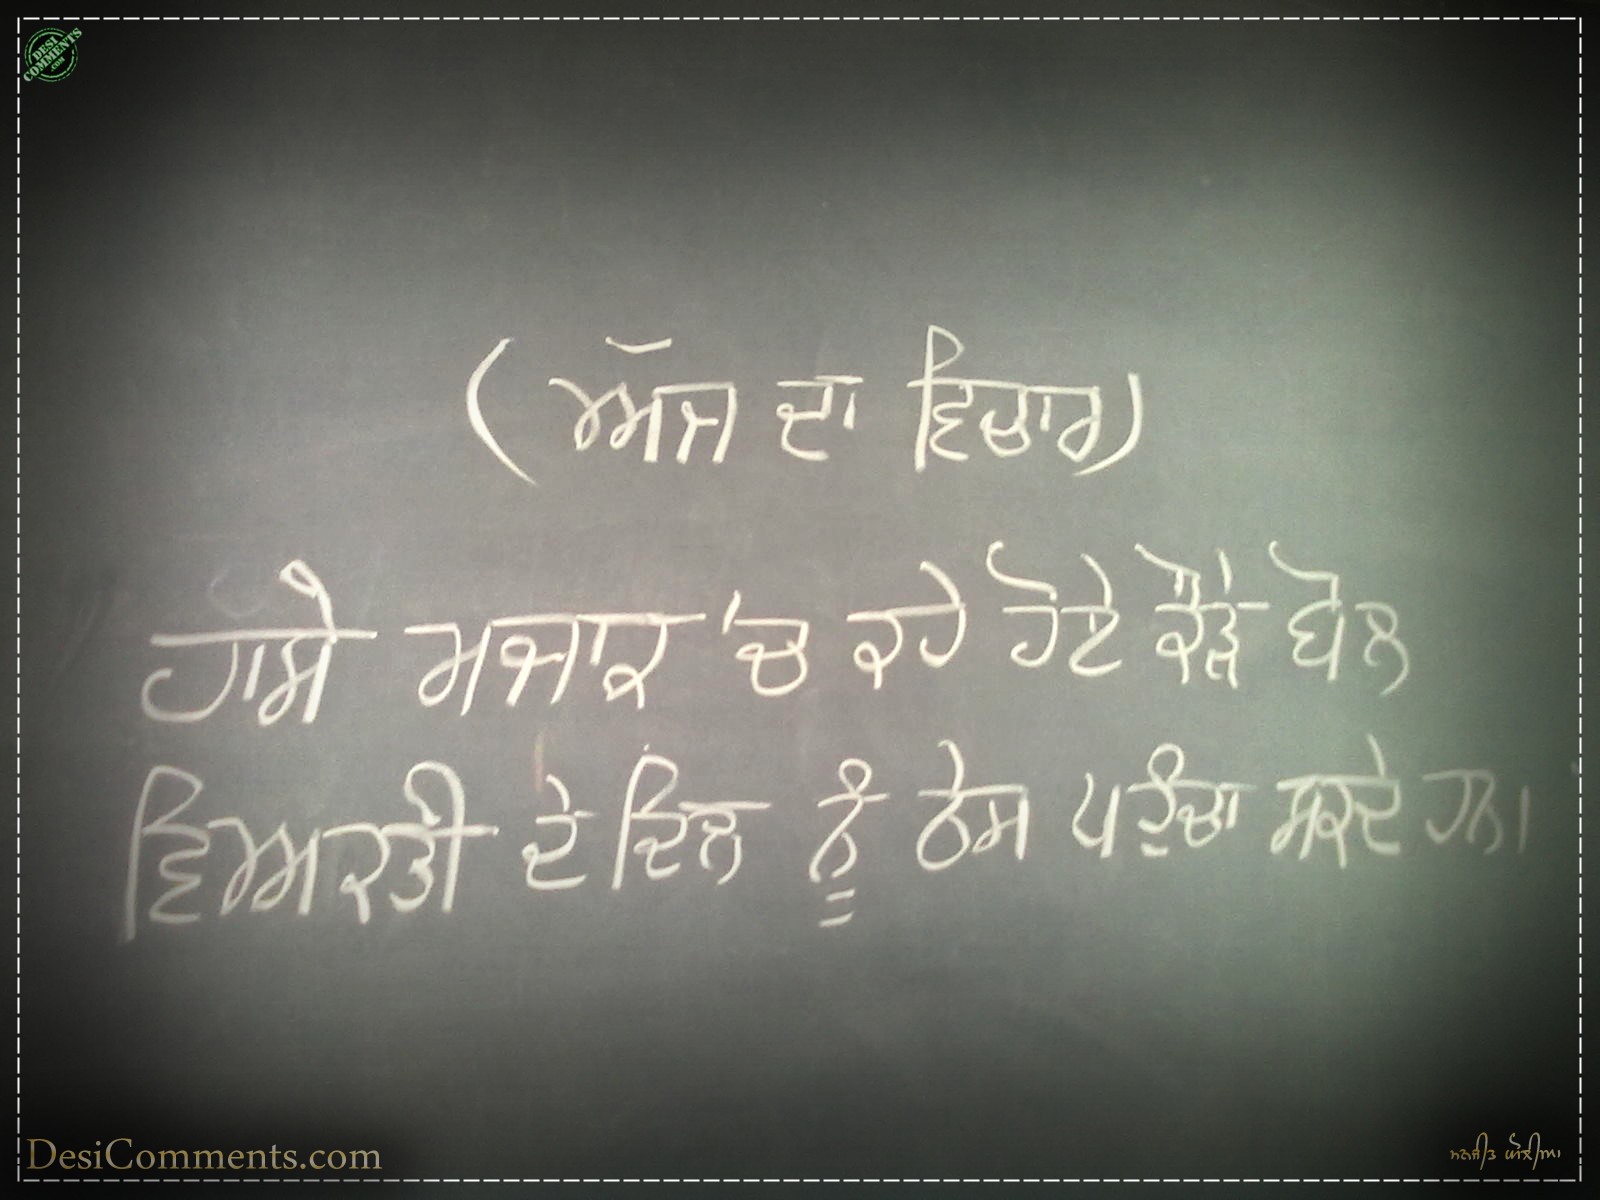 DESI
COMMENTS
.COM
( ਅੱਜ ਦਾ ਵਿਚਾਰ)
ਹਾਸੇ ਮਜਾਕ 'ਚ ਕਹੇ ਹੋਏ ਕੌੜੇ ਬੋਲ
ਵਿਅਕਤੀ ਦੇ ਦਿਲ ਨੂੰ ਠੇਸ ਪਹੁੰਚਾ ਸਕਦੇ ਹਨ।
DesiComments.com